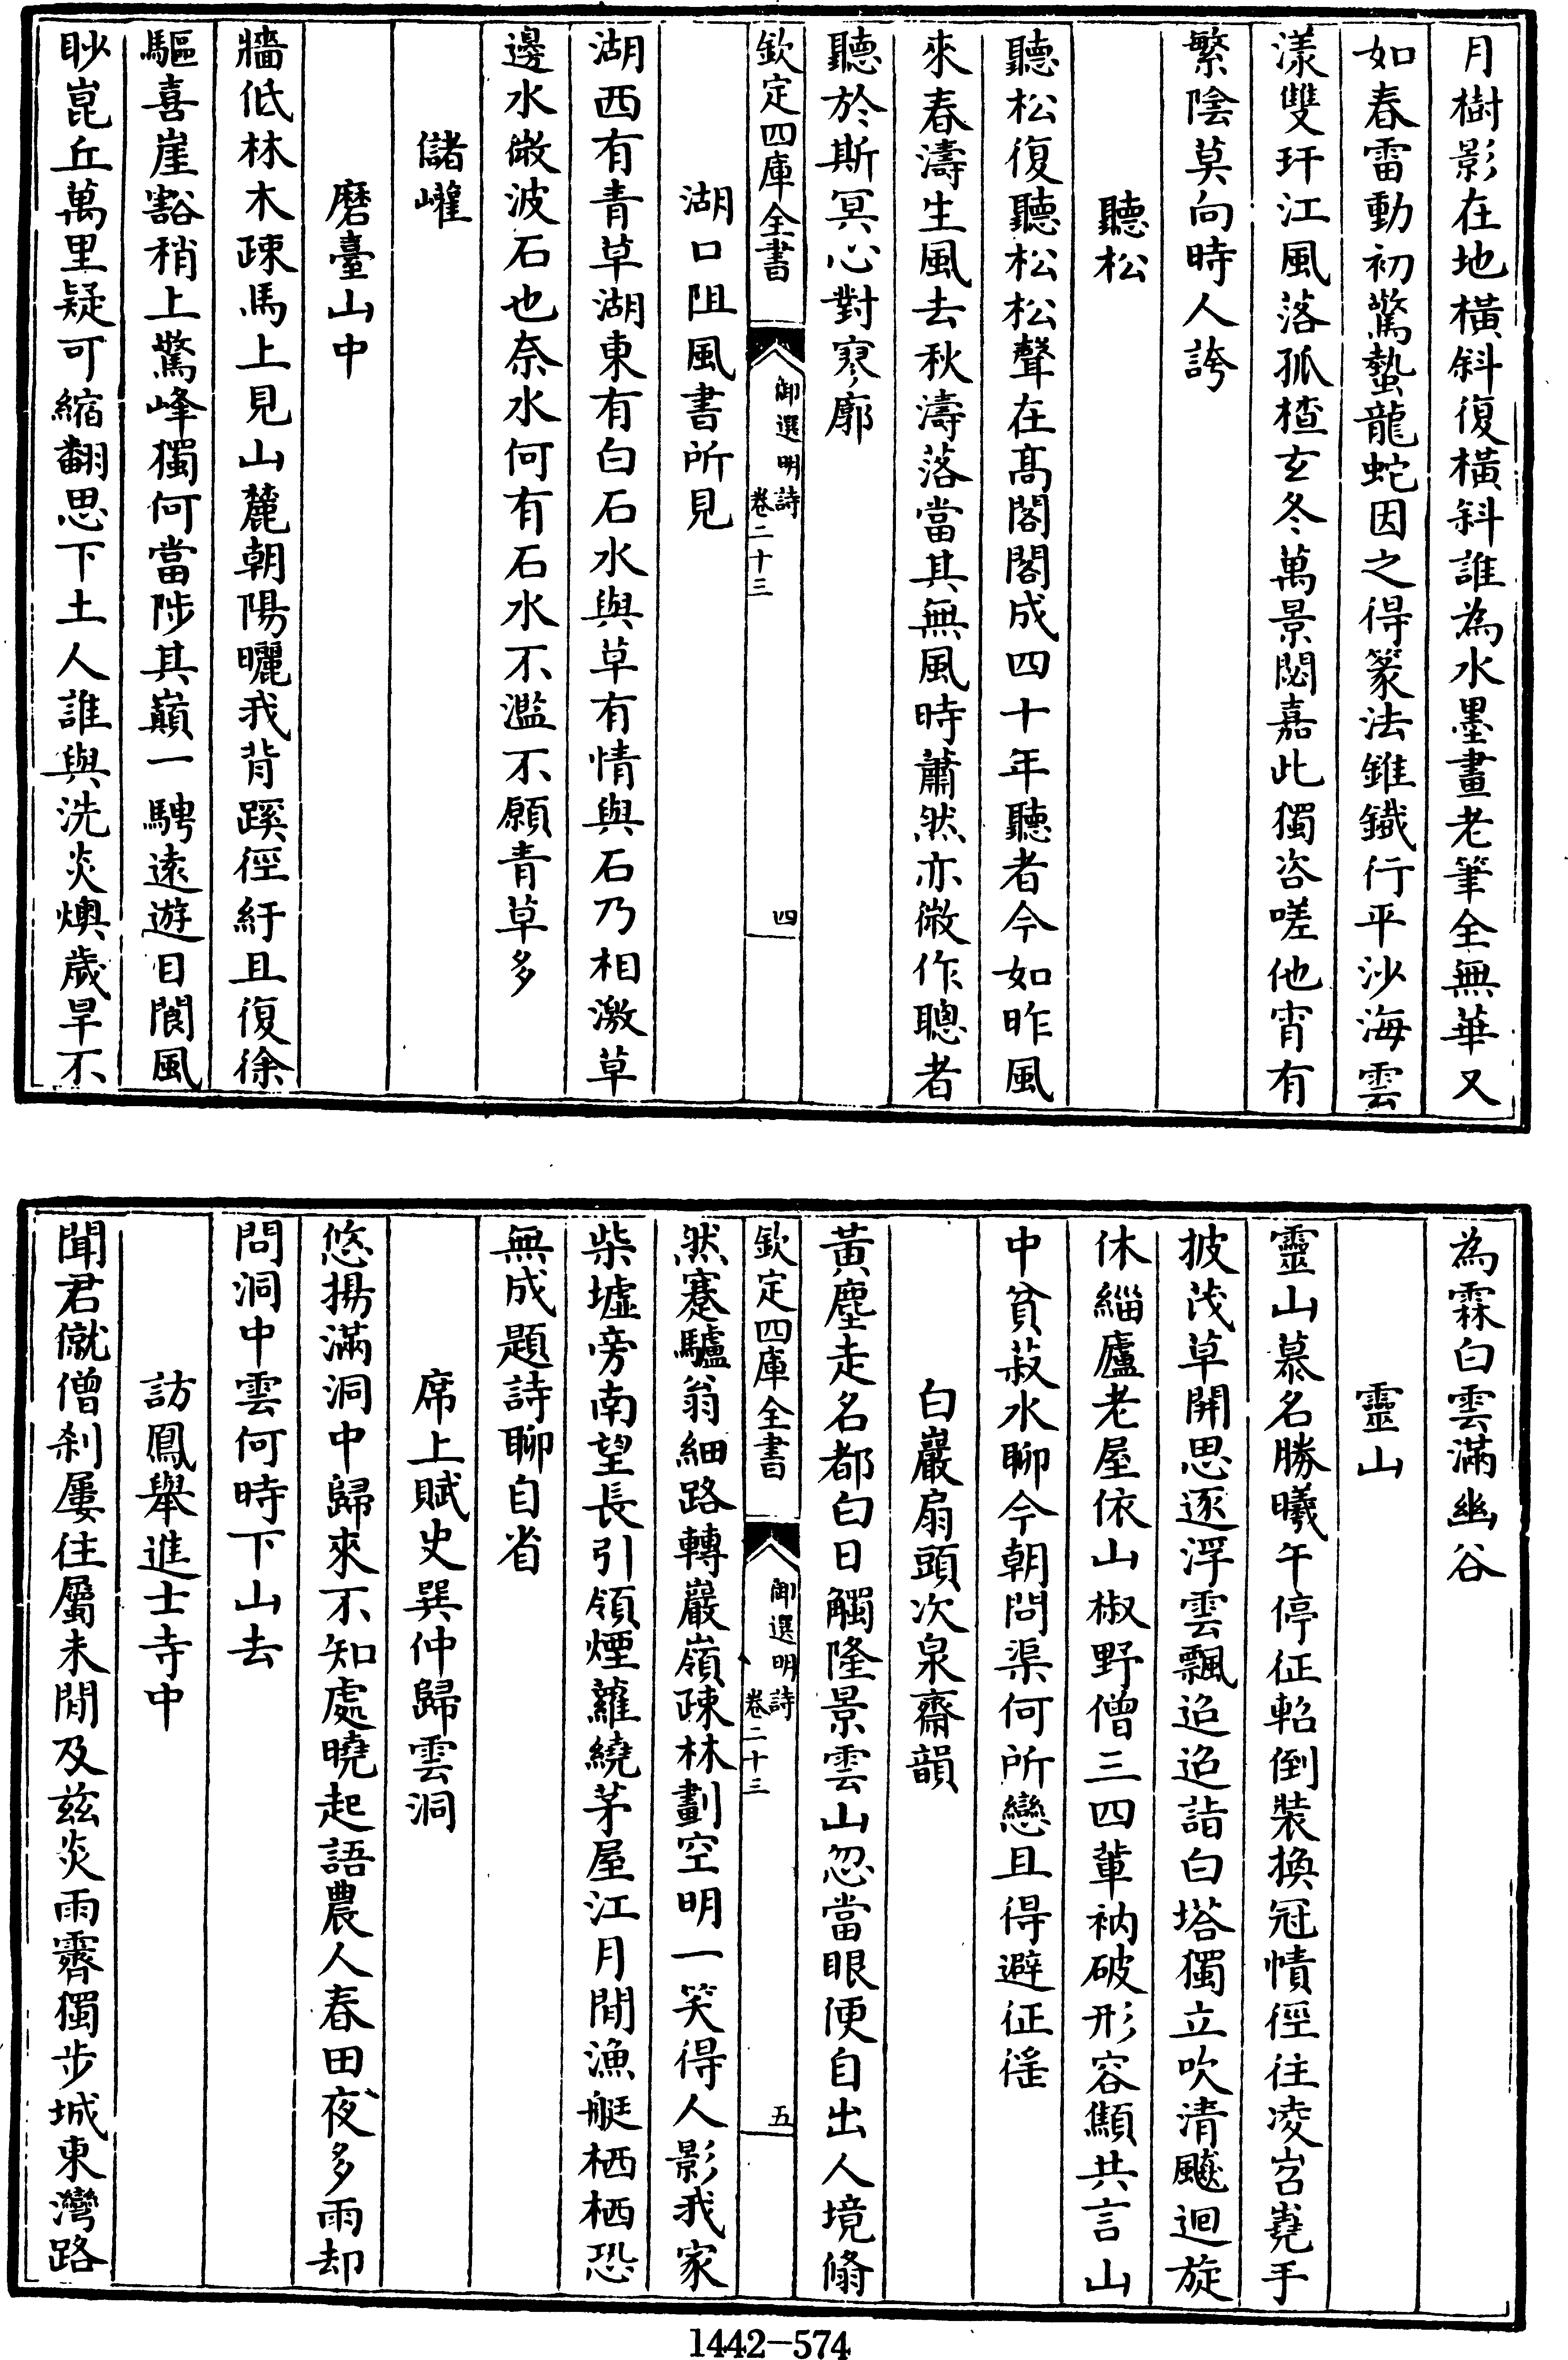 月樹影在地橫斜復橫斜誰為水墨畫老筆全無華又
如春雷動初驚蟄龍蛇因之得篆法錐鐵行平沙海雲
漾雙玕江風落孤楂玄冬萬景閟嘉此獨咨嗟他宵有
繁陰莫向時人誇
聽松
聽松復聽松松聲在髙閣閣成四十年聽者今如昨風
來春濤生風去秋濤落當其無風時蕭然亦微作聰者
聽於斯冥心對寥廓
欽定四庫全書
御選明詩
卷二十三
四
湖口阻風書所見
湖西有青草湖東有白石水與草有情與石乃相激草
邊水微波石也奈水何有石水不濫不願青草多
儲巏
磨臺山中
牆低林木疎馬上見山麓朝陽曬我背蹊徑紆且復徐
驅喜崖豁稍上驚峰獨何當陟其巔一騁遠遊目閬風
眇崑丘萬里疑可縮翻思下土人誰與洗炎燠歲旱不
為霖白雲滿幽谷
靈山
靈山慕名勝曦午停征軺倒裝換冠幘徑往凌岧嶤手
披茂草開思逐浮雲飄迢迢詣白塔獨立吹清飈迴旋
休緇廬老屋依山椒野僧三四軰衲破形容顦共言山
中貧菽水聊今朝問渠何所戀且得避征徭
白巖扇頭次泉齋韻
黃塵走名都白日觸隆景雲山忽當眼便自出人境翛
欽定四庫全書
御選明詩
卷二十三
五
然蹇驢翁細路轉巖嶺疎林劃空明一笑得人影我家
柴墟旁南望長引領煙蘿繞茅屋江月閒漁艇栖栖恐
無成題詩聊自省
席上賦史巽仲歸雲洞
悠揚滿洞中歸來不知處曉起語農人春田夜多雨却
問洞中雲何時下山去
訪鳳舉進士寺中
聞君僦僧刹屢往屬未閒及兹炎雨霽獨步城東灣路
1442-574